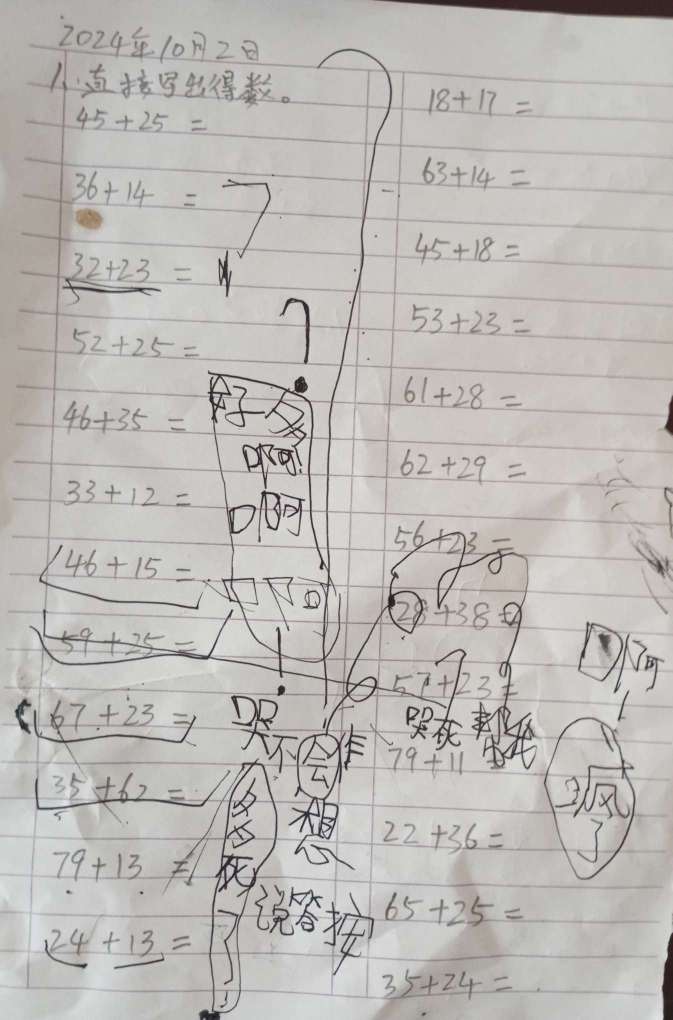 2024年10月2日
1、直接写出得数。
45+25=
36+14=
32+23=
52+25=
46+35=
33+12=
46+15=
59+25=
67+23=
35+62=
79+13=
24+13=
好多
啊啊
哭不会作
多多死了
想
说答按
18+17=
63+14=
45+18=
53+23=
61+28=
62+29=
56+23=
28+38=
57+23=
哭死
79+11
22+36=
65+25=
35+24=
啊
疯
了